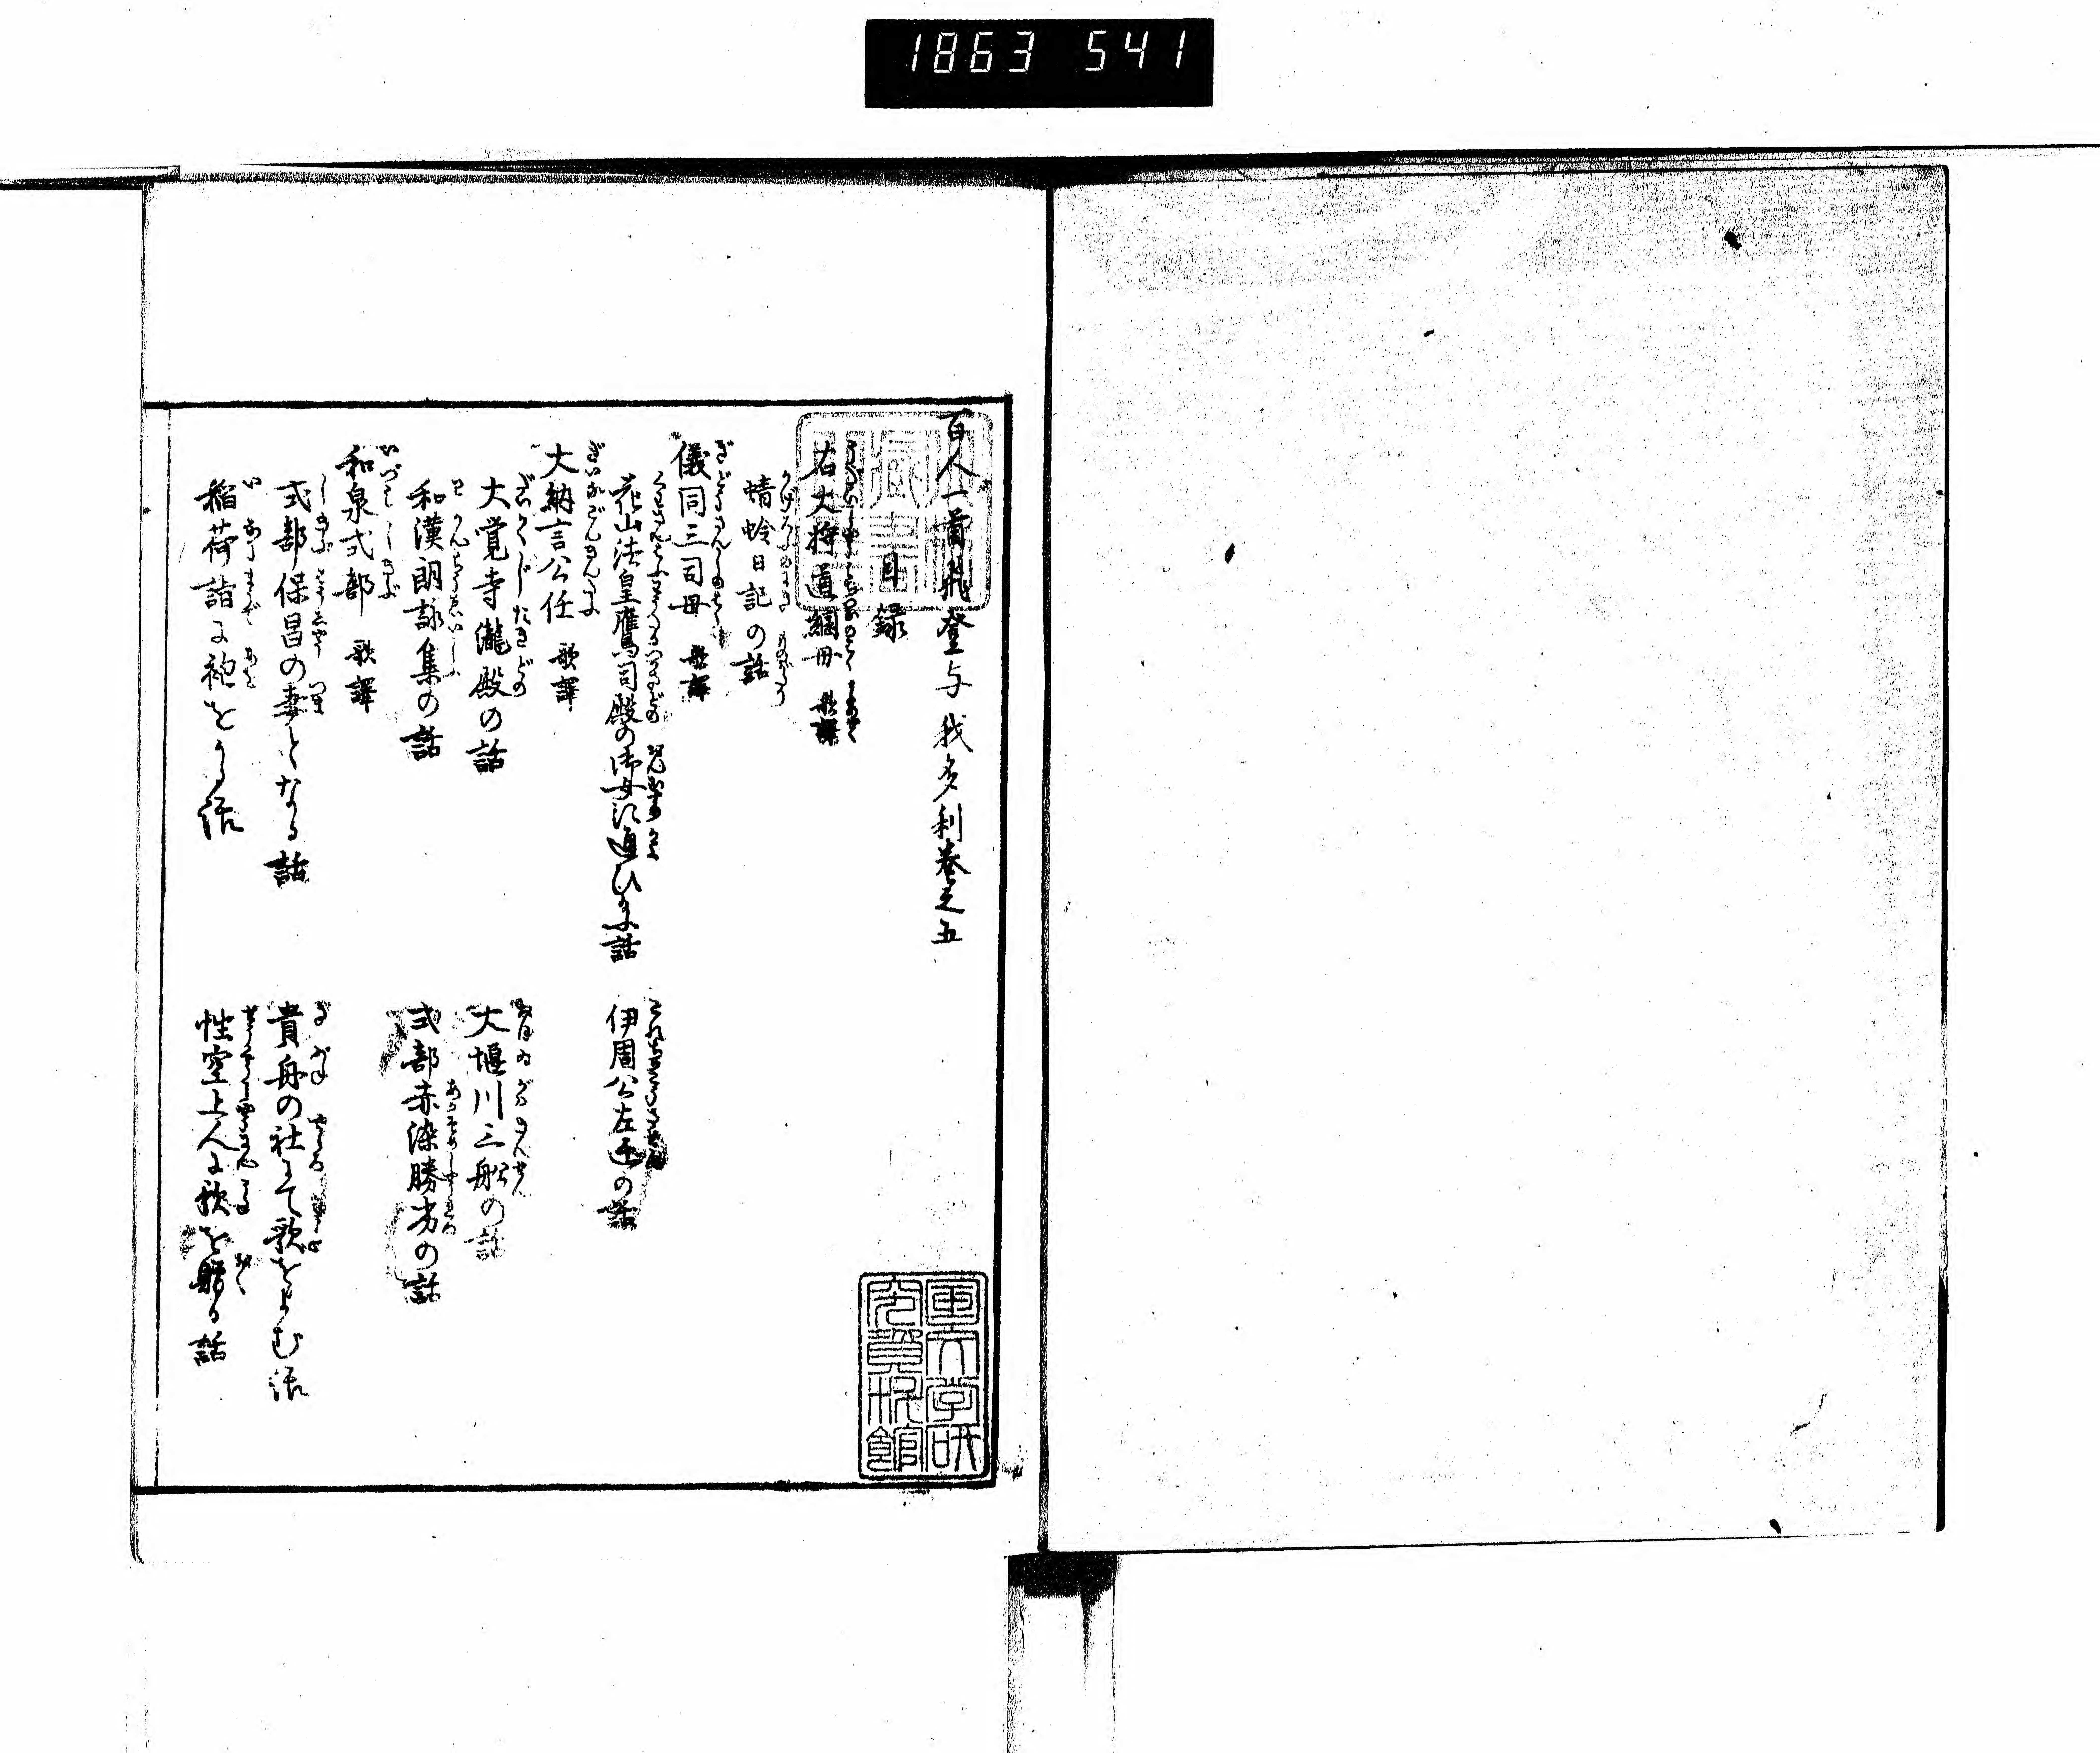 1863 541
百人一首飛登与我多利巻之五
目録
右大将道綱母 歌譯
蜻蛉日記の話
儀同三司母 歌譯
花山法皇鷹司殿の御女に通ひ給ふ話
伊周公左遷の話
大納言公任 歌譯
大覚寺瀧殿の話
大堰川三船の話
和漢朗詠集の話
式部赤染勝劣の話
和泉式部 歌譯
式部保昌の妻となる話
貴舟の社にて歌をよむ話
稲荷詣に袍をかる話
性空上人に歌を贈る話
国文学研
究資料館